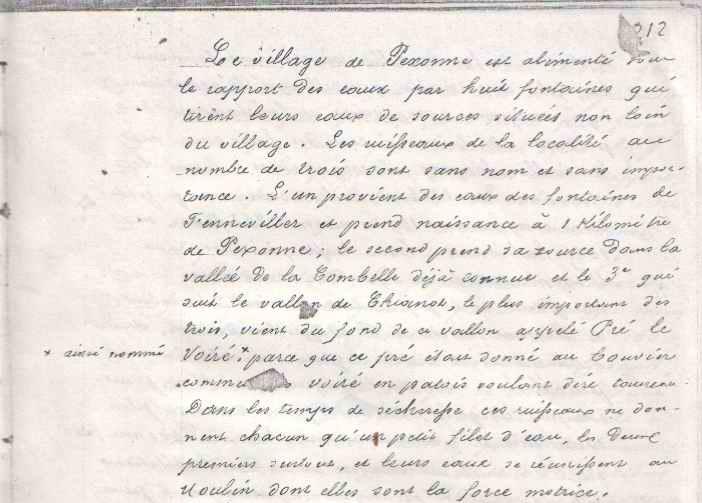 212
Le village de Pexonne est alimenté sous
le rapport des eaux par huit fontaines qui
tirent leurs eaux de sources situées non loin
du village. Les ruisseaux de la localité au
nombre de trois sont sans nom et sans impor-
tance. L'un provient des eaux des fontaines de
Fenneviller et prend naissance à 1 Kilomètre
de Pexonne; le second prend sa source dans la
vallée de la Combelle déjà connue et le 3e qui
suit le vallon de Thianot, le plus important des
trois, vient du fond de ce vallon appelé Pré le
Voiré, * parce que ce pré était donné au bouvier
* ainsi nommé
voiré en patois voulant dire taureau.
Dans les temps de sécheresse ces ruisseaux ne don-
nent chacun qu'un petit filet d'eau, les deux
premiers surtout, et leurs eaux se réunissent au
Moulin dont elles sont la force motrice.